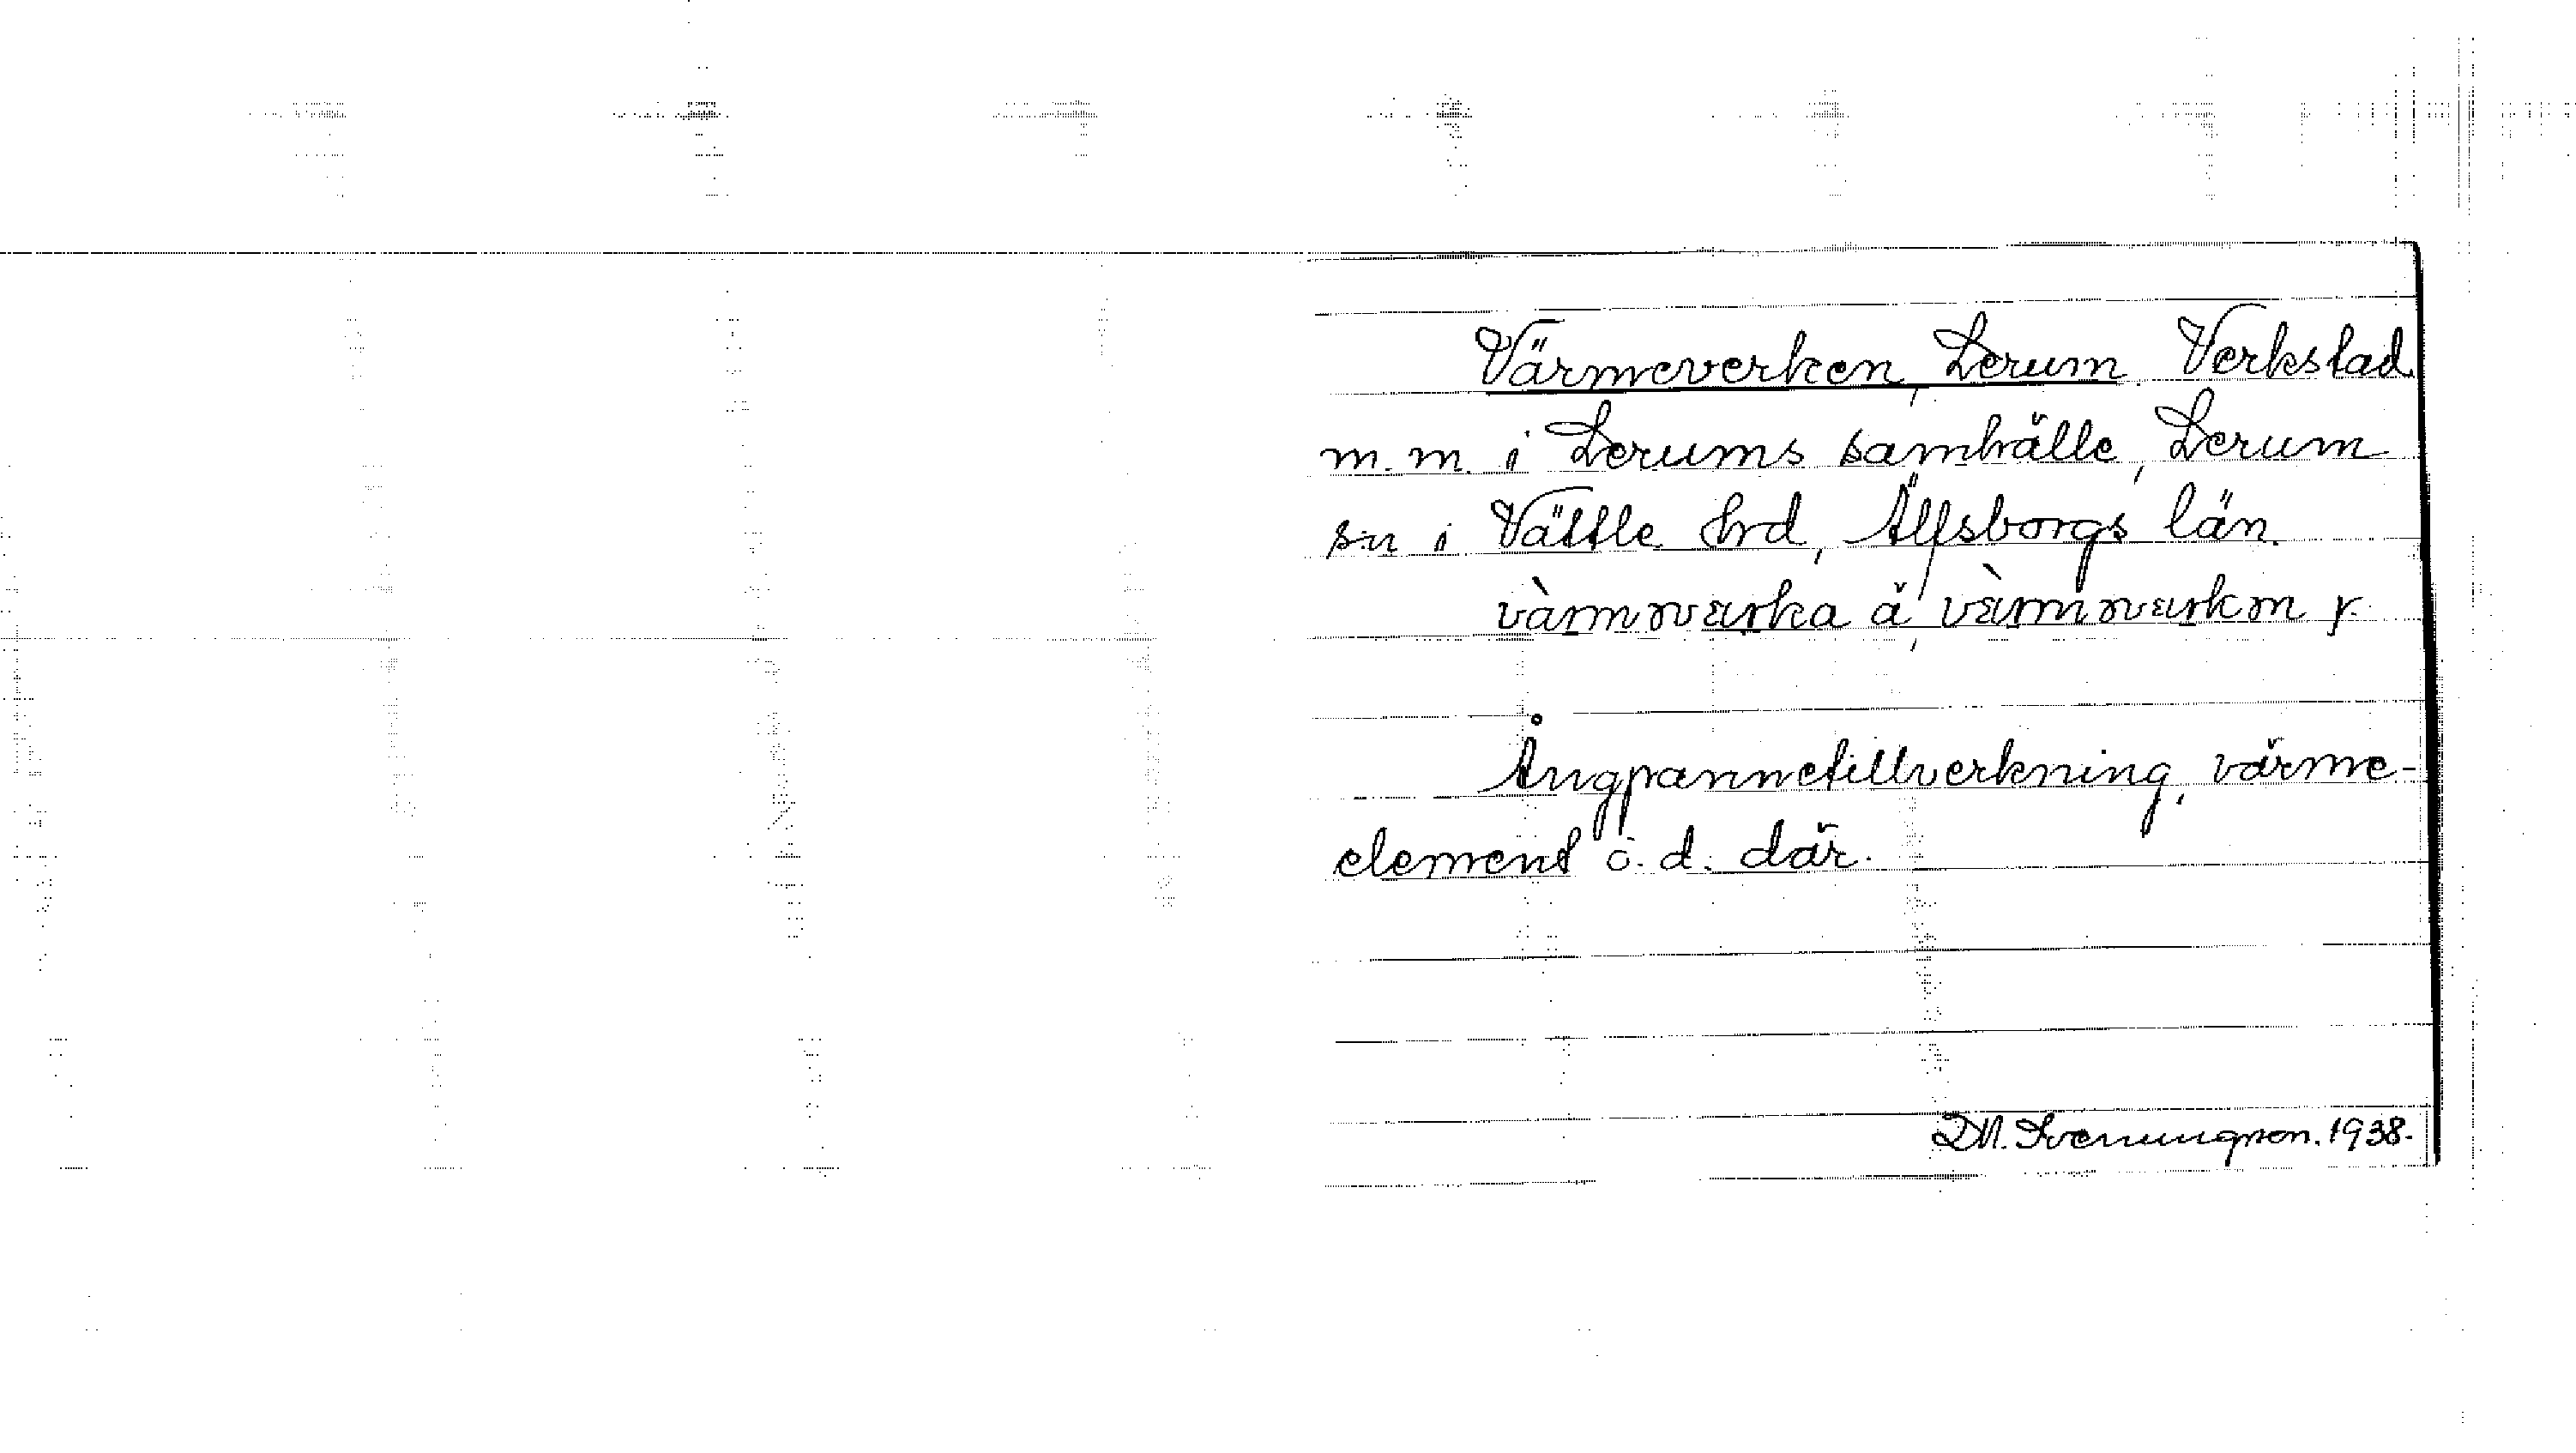 Värmeverken, Lerum. Verkstad
m.m. i Lerums samhälle, Lerum
sn i Vättle hd, Älfsborgs län.
vàrmværka å, vàrmværkən r.
Ångpannetillverkning, värme-
element o. d. där.
D.M. Svenungsson. 1938.